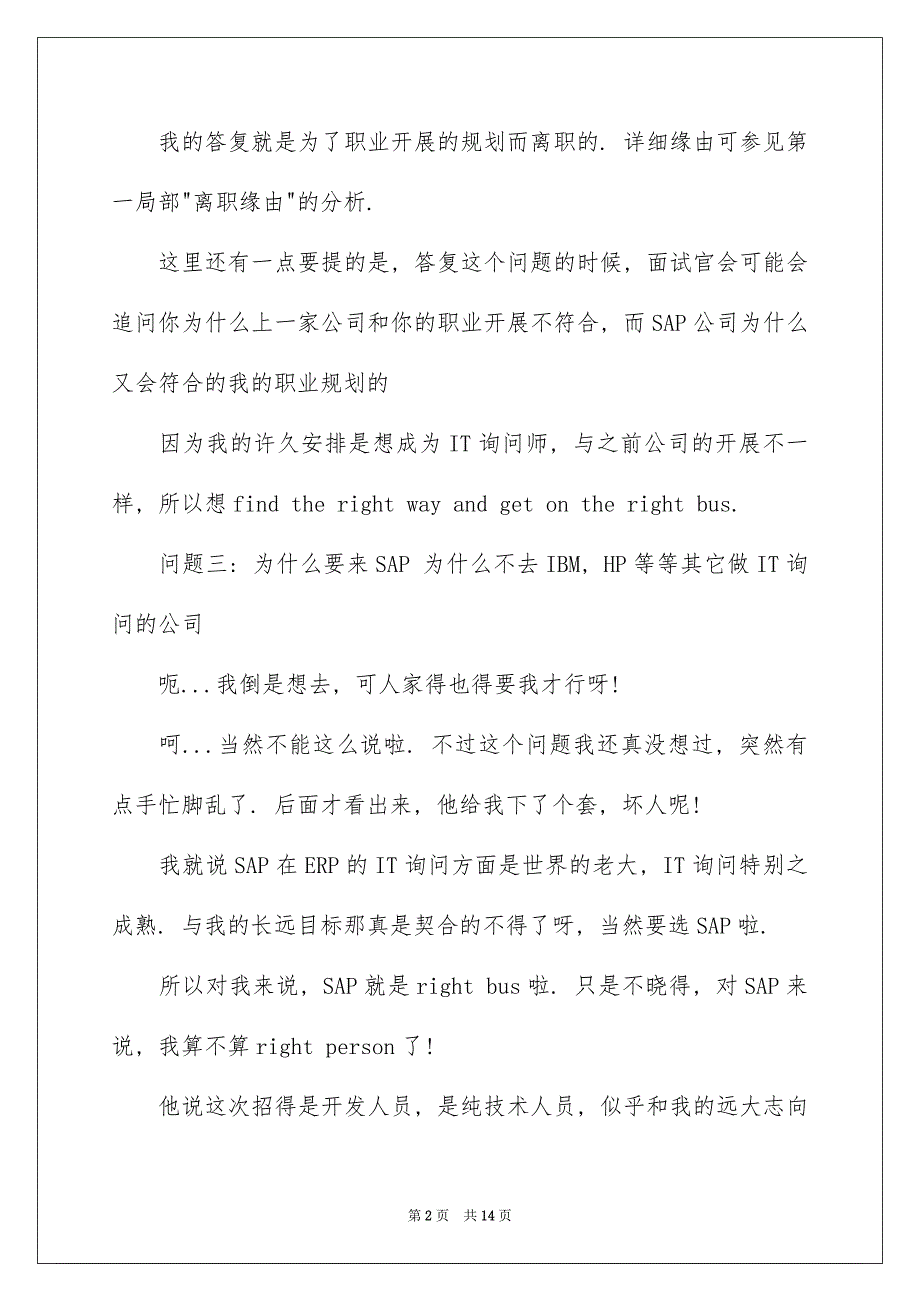 我的答复就是为了职业开展的规划而离职的. 详细缘由可参见第
一局部"离职缘由"的分析.
这里还有一点要提的是, 答复这个问题的时候, 面试官会可能会
追问你为什么上一家公司和你的职业开展不符合, 而 SAP 公司为什么
又会符合的我的职业规划的
因为我的许久安排是想成为 IT 询问师, 与之前公司的开展不一
样, 所以想 find the right way and get on the right bus.
问题三: 为什么要来 SAP 为什么不去 IBM, HP 等等其它做 IT 询
问的公司
呃...我倒是想去, 可人家得也得要我才行呀!
呵...当然不能这么说啦. 不过这个问题我还真没想过, 突然有
点手忙脚乱了. 后面才看出来, 他给我下了个套, 坏人呢!
我就说 SAP 在 ERP 的 IT 询问方面是世界的老大, IT 询问特别之
成熟. 与我的长远目标那真是契合的不得了呀, 当然要选 SAP 啦.
所以对我来说, SAP 就是 right bus 啦. 只是不晓得, 对 SAP 来
说, 我算不算 right person 了!
他说这次招得是开发人员, 是纯技术人员, 似乎和我的远大志向
第 2 页 共 14 页